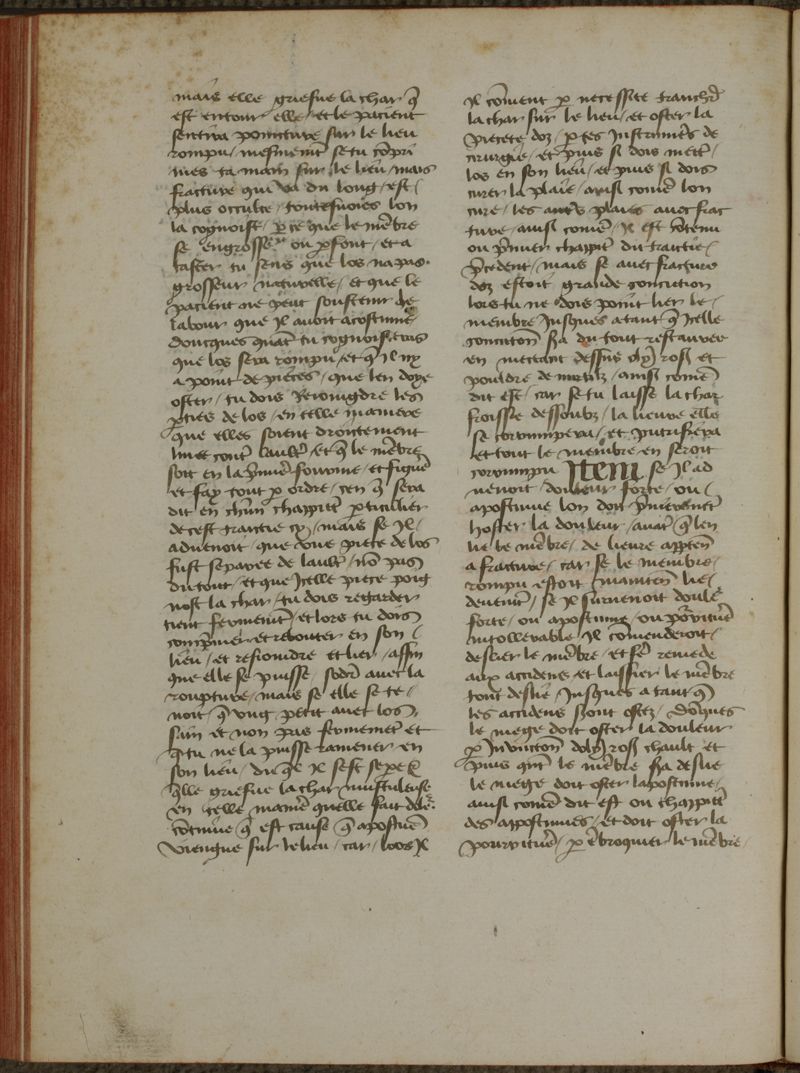 mais elle griefue la char q̄
est entour elle et le pacient
sentira poincture sur le lieu
rompu / mesmemēt se tu cōpri
mes ta main sur le lieu / mais
fracture qui va du long / est /
plus occulte / toutesuoies lon
la cognoist / p̄ ce que le mēbre
se engrosse ou p̄font / et a
taster tu sens que los na pas
grosseur naturelle / et que le
pacient ne peut soustenir le
labour que il auoit acostumé
doncques quāt tu cognoisteras
que los sera rompu / et q̄ il ny
a point de pieces / que len doye
oster / tu dois reioingdre les
p̄ties de los / en telle maniere
que elles soient droictement
lune contᵉ lault̄ / et q̄ le mēbre
soit en la p̄mieʳ fourme / et figuᵉ
et fay tout p̄ ordre / cen q̄ sera
dit en chūn chappitᵉ p̄ticulier
de cest traictie cy / mais se il /
aduenoit / que vne piece de los
fust separee de lault̄ / nō pas
du tout / et que icelle piece poig
nost la char / tu dois regarder
 fermemēt / et lors tu dois
comp̄mer et rebouter en son /
lieu / et resioindre et lier / affin
que elle se puisse / soder auec la
roupture / mais se elle se te /
noit q̄ vng petit auec los /
sain et non pas fermemēt et
q̄ tu ne la puisse ramener en
son lieu / il sest sepᵉ
 griefue la char musculeuse
en telle manieʳ quelle fait douᵉ
cōtinue q̄ est cause q̄ apostuē
viengne sur le lieu / car / lors il
il cōuient p̄ necessite trancher
la char sur le lieu / et oster la
piecete doz / p̄ tes instrumēs de
cirurgie / et puis si dois mettᵉ /
los en son lieu / et puis si dois
curer la plaie / ainsi comē lon
cure / les autᵉs plaies auec frac
ture / ainsi comē / il est cōtenu
ou p̄mier chappitᵉ du traictie /
p̄cedent / mais se auec fracture
doz estoit grande concution
lors tu ne dois point lier le /
membre iusques atant q̄ icelle
concution soit du tout restauree
en mectant dessus oly rosi et
pouldre de mirtilz / ainsi comē
dit est / car se tu laisse la char
froissie dessoubz / la lieure elle
se corrumpera / et putrifiera
et tout le membre en seroit
corrumpu Item se il ad
uenoit / douleur forte / ou /
apostume lon doit p̄mieremēt
hoster la douleur / auāt q̄ len
lie le mēbre / de lieure appten
a fracture / car se le membre /
rompu estoit lie /
deuemēt / se il suruenoit douleʳ
forte / ou apostume / ou
intollerable il conuenderoit /
deslier le mēbre / et feᵉ remede
aux accidens et laissier le mēbre
tout deslie / iusques a tant q̄
les accidens soient ostez / doncques
le miege doit oster la douleur
p̄ inunction doly rosi chault et
puis qāt le mēbre sera deslie
le miege doit oster lapostume /
ainsi comē dit est ou chappitᵉ
des appostumes / et doit oster la
 p̄ ēbroquier le mēbre /